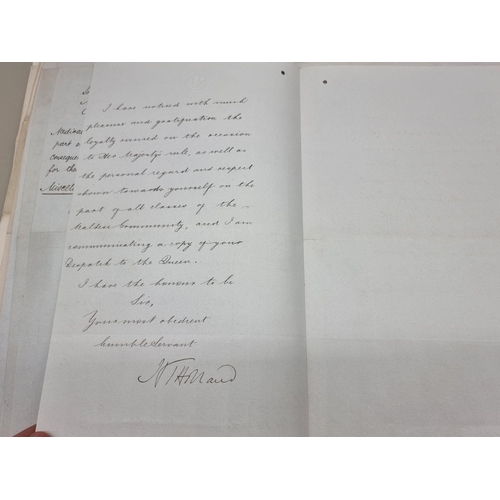 I have noticed with much
pleasure and gratification the
loyalty evinced on the occasion
to Her Majesty's rule, as well as
the personal regard and respect
shown towards yourself on the
part of all classes of the
Maltese Community, and I am
communicating a copy of your
Despatch to the Queen.
I have the honour to be
Sir,
Your most obedient
humble Servant
part
conseque
for the